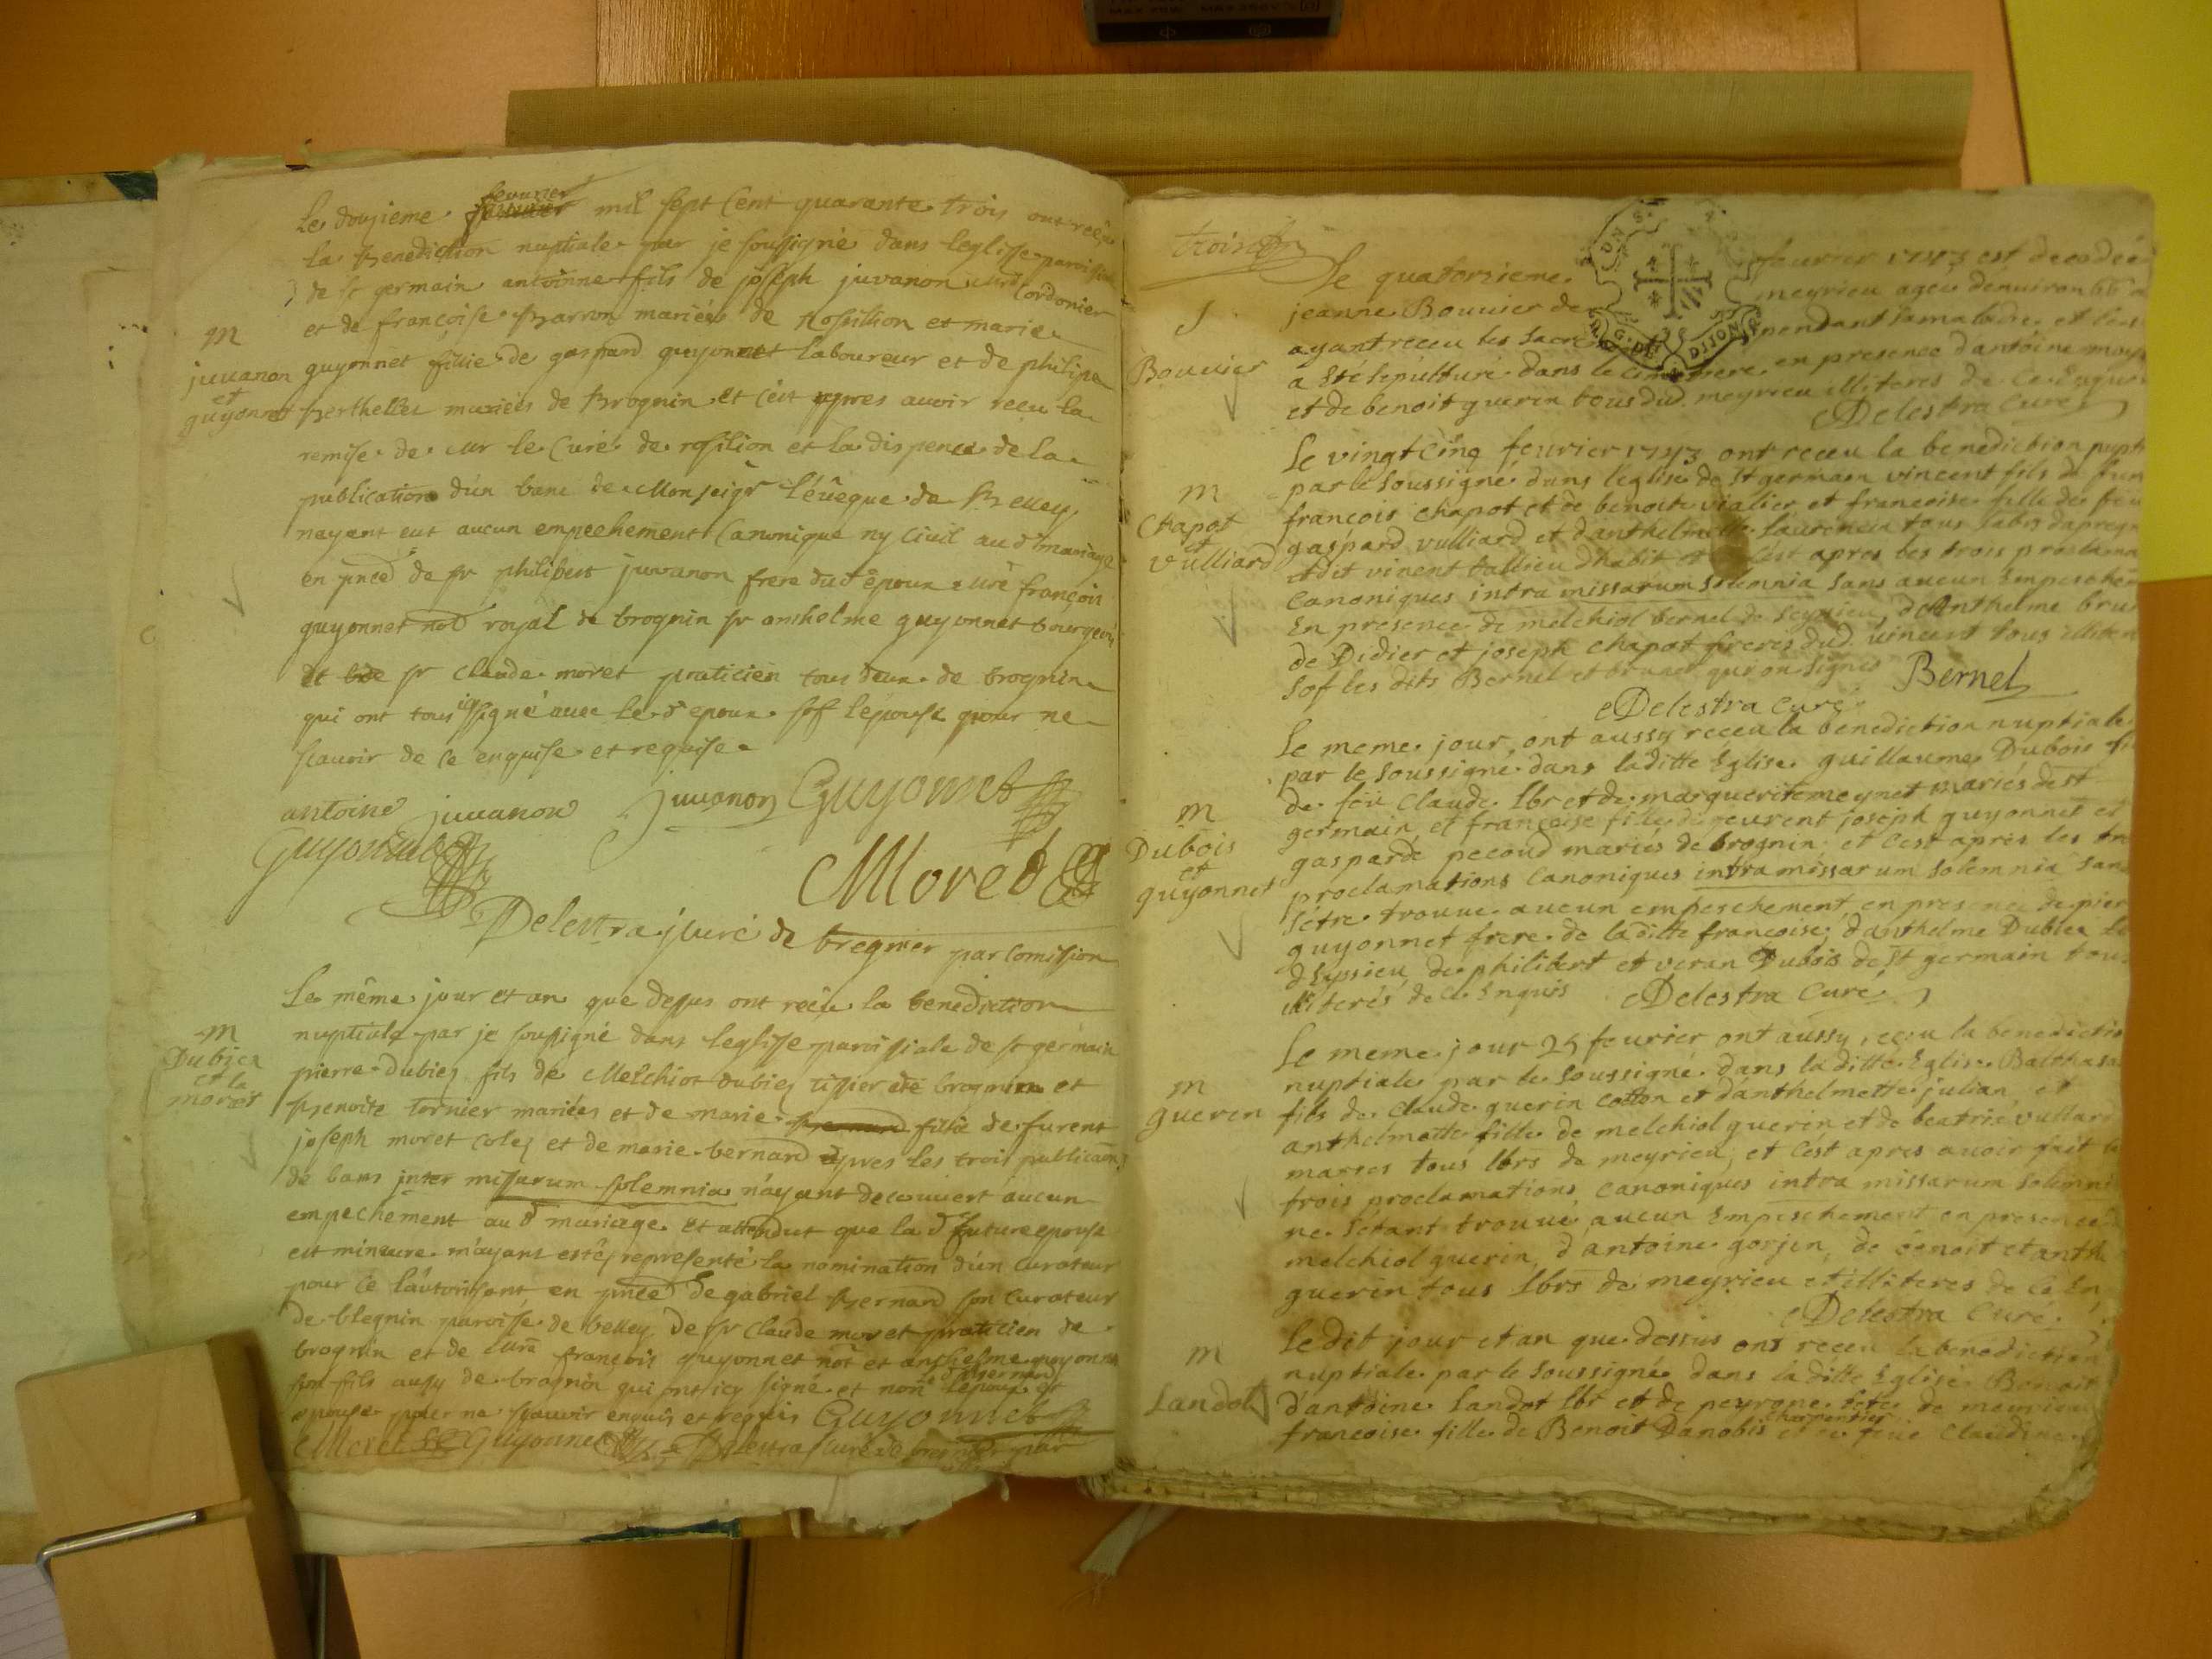 Le douzieme fevurier mil sept Cent quarante trois ont reçu
la Benediction nuptiale par je soussigné dans leglisse paroissiale
de st germain antoinne fils de joseph juvanon md Cordonier
et de françoise Barron mariés de Rossillion et marie
guyonnet fillie de gaspard guyonnet laboureur et de philipe
Berthellet mariées de Brognin et c'est apres auoir recu la
remise de mr le Curé de rosilion et la dispence de la
publication d'un banc de Monseigr l'évêque de Belley
nayant eut aucun empechement Canonique ny Ciuil au d mariage
en pnce de sr philibert juvanon frere dud époux me françois
guyonnet not royal de brognin sr anthelme guyonnet bourgeois
et de sr Claude moret praticien tous deux de brognin
qui ont tous signé auec le d epoux sof lépouse pour ne
scauoir de ce enquise et requise
antoine juuanon juuanon Guyonnet
Guyonnet
Moret
Delestra curé de bregnier par comission
m
juuanon
et
guyonnet
Le même jour et an que dessus ont reçu la benediction
nuptiale par je soussigné dans leglisse paroissiale de st germain
pierre dubiez fils de Melchiot dubiez tissier de brognin et
Benoite tornier mariées et de marie fillie de furent
joseph moret Colez et de marie bernard apres les trois publicaons
de bans inter missarum solemnia n'ayant decouuert aucun
empechement au d mariage et attendut que la d future epouse
est mineure m'ayant esté representé la nomination d'un Curateur
pour ce l'autorisant en pnce de gabriel Bernard son Curateur
de blegnin paroisse de belley de sr Claude moret praticien de
brognin et de me françois guyonnet not et anthelme guyonnet
son fils ausy de brognin qui ont icy signé et non lepoux et
epouse pour ne scauoir enquis et requis Guyonnet
Moret Guyonnet Delestra Curé de bregnier par
m
Dubiez
et la
moret
troise
Le quatorzieme feurier 1743 est decedée
jeanne Bouuier de meyrieu agée denuiron 66
ayant receu les Sacre pendant sa maladie et
a Ete Sepulture dans le Cimetiere en presence d'antoine
et de benoit guerin tous dud meyrieu illiteres de ce Enquis
Delestra Curé
S
Bouuier
Le vingt Cinq feurier 1743 ont receu la benediction nupt
par le Soussigné dans leglise de St germain vincent fils de
francois chapot et de benoite vialier et francoise fille de feu
gaspard vulliard et d'anthelmette laurencin tous labrs
et dit vincent tallieu dhabit et Cest apres les trois proclama
Canoniques intra missarum Solemnia Sans aucun Empeschem
En presence de melchiol bernel de Seyrieu, d'Anthelme brun
de Didier et joseph chapot freres dud vincent tous illiter
Sof les dits Bernel et brunet qui on Signés Bernel
Delestra Curé
m
Chapot
et
vulliard
Le meme jour ont aussy receu la benediction nuptiale
par le Soussigné dans laditte Eglise guillaume Dubois
de feu Claude lbr et de marguerite meynet mariés de St
germain et francoise fille de feurent joseph guyonnet et
gasparde pecoud mariés de brognin et Cest apres les
proclamations Canoniques intra missarum Solemnia San
Setre trouue aucun empeschement en presence de pier
guyonnet frere de laditte francoise, d'anthelme Dublea
dSyssieu de philibert et veran Dubois de St germain tous
illiterés de ce Enquis Delestra Curé
m
Dubois
et
guyonnet
Le meme jour 25 feurier ont aussy receu la benedictio
nuptiale par le Soussigné dans laditte Eglise Balthasa
fils de Claude guerin Cotton et d'anthelmette julian et
anthelmette fille de melchiol guerin et de beatrix vulliard
mariés tous lbrs de meyrieu, et Cest apres auoir fait
trois proclamations Canoniques intra missarum Solemn
ne Setant trouué aucun Empeschement en presence
melchiol guerin, d'antoine gorjon, de benoit et anth
guerin tous lbrs de meyrieu et illiteres de ce En
Delestra Curé
m
guerin
Le dit jour et an que dessus ont receu la benediction
nuptiale par le Soussigné dans laditte Eglise Benoit
d'antoine landot lbr et de peyrone de meyrieu
francoise fille de Benoit Danobis charpentier et de feue Claudine
m
Landot